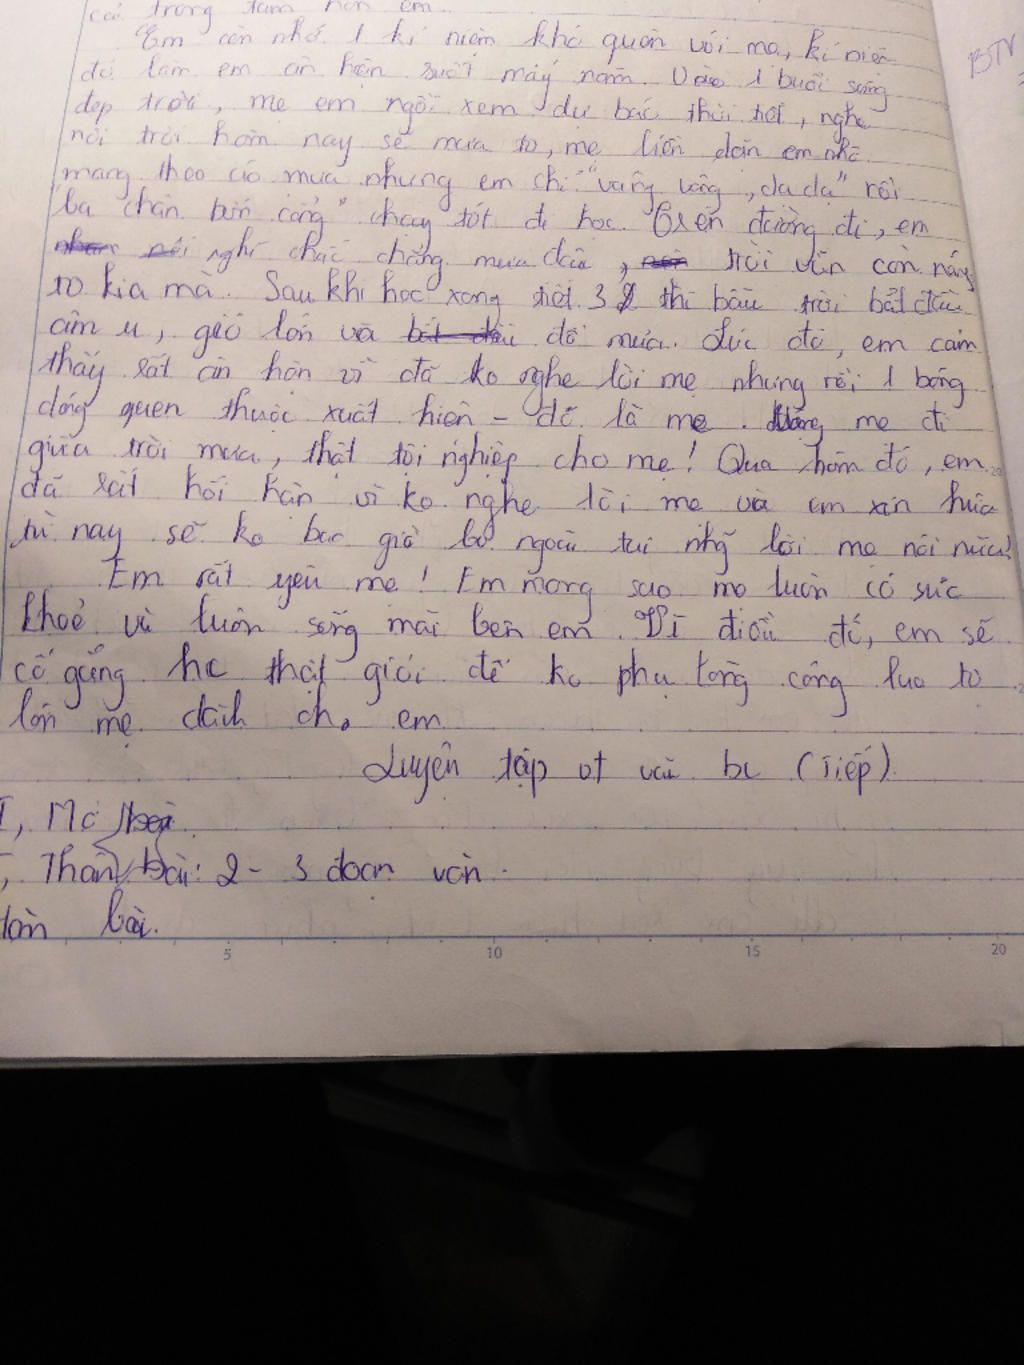 trong tâm hồn em.
Em còn nhớ 1 kí niệm khó quên với mẹ, kí niệm
đó làm em ân hận suốt mấy năm. Vào 1 buổi sáng
đẹp trời, mẹ em ngồi xem dự báo thời tiết, nghe
nói trời hôm nay sẽ mưa to, mẹ liền dặn em nhớ
mang theo áo mưa nhưng em chỉ "vâng vâng, dạ dạ" rồi
"ba chân bốn cẳng" chạy tót đi học. Trên đường đi, em
nghĩ chắc chẳng mưa đâu, trời vẫn còn nắng
to kia mà. Sau khi học xong tiết 3 thì bầu trời bắt đầu
âm u, gió lớn và đổ mưa. Lúc đó, em cảm
thấy rất ân hận vì đã ko nghe lời mẹ nhưng rồi 1 bóng
dáng quen thuộc xuất hiện - đó là mẹ. mẹ đi
giữa trời mưa, thật tội nghiệp cho mẹ! Qua hôm đó, em
đã rất hối hận vì ko nghe lời mẹ và em xin hứa
từ nay sẽ ko bao giờ bỏ ngoài tai nhg~ lời mẹ nói nữa!
Em rất yêu mẹ! Em mong sao mẹ luôn có sức
khoẻ và luôn sống mãi bên em. Vì điều đó, em sẽ
cố gắng hc thật giỏi để ko phụ lòng công lao to
lớn mẹ dành cho em
Luyện tập vt vài bc (Tiếp)
I, Mở bài
, Thân bài: 2 - 3 đoạn văn.
bài.
5 10 15 20